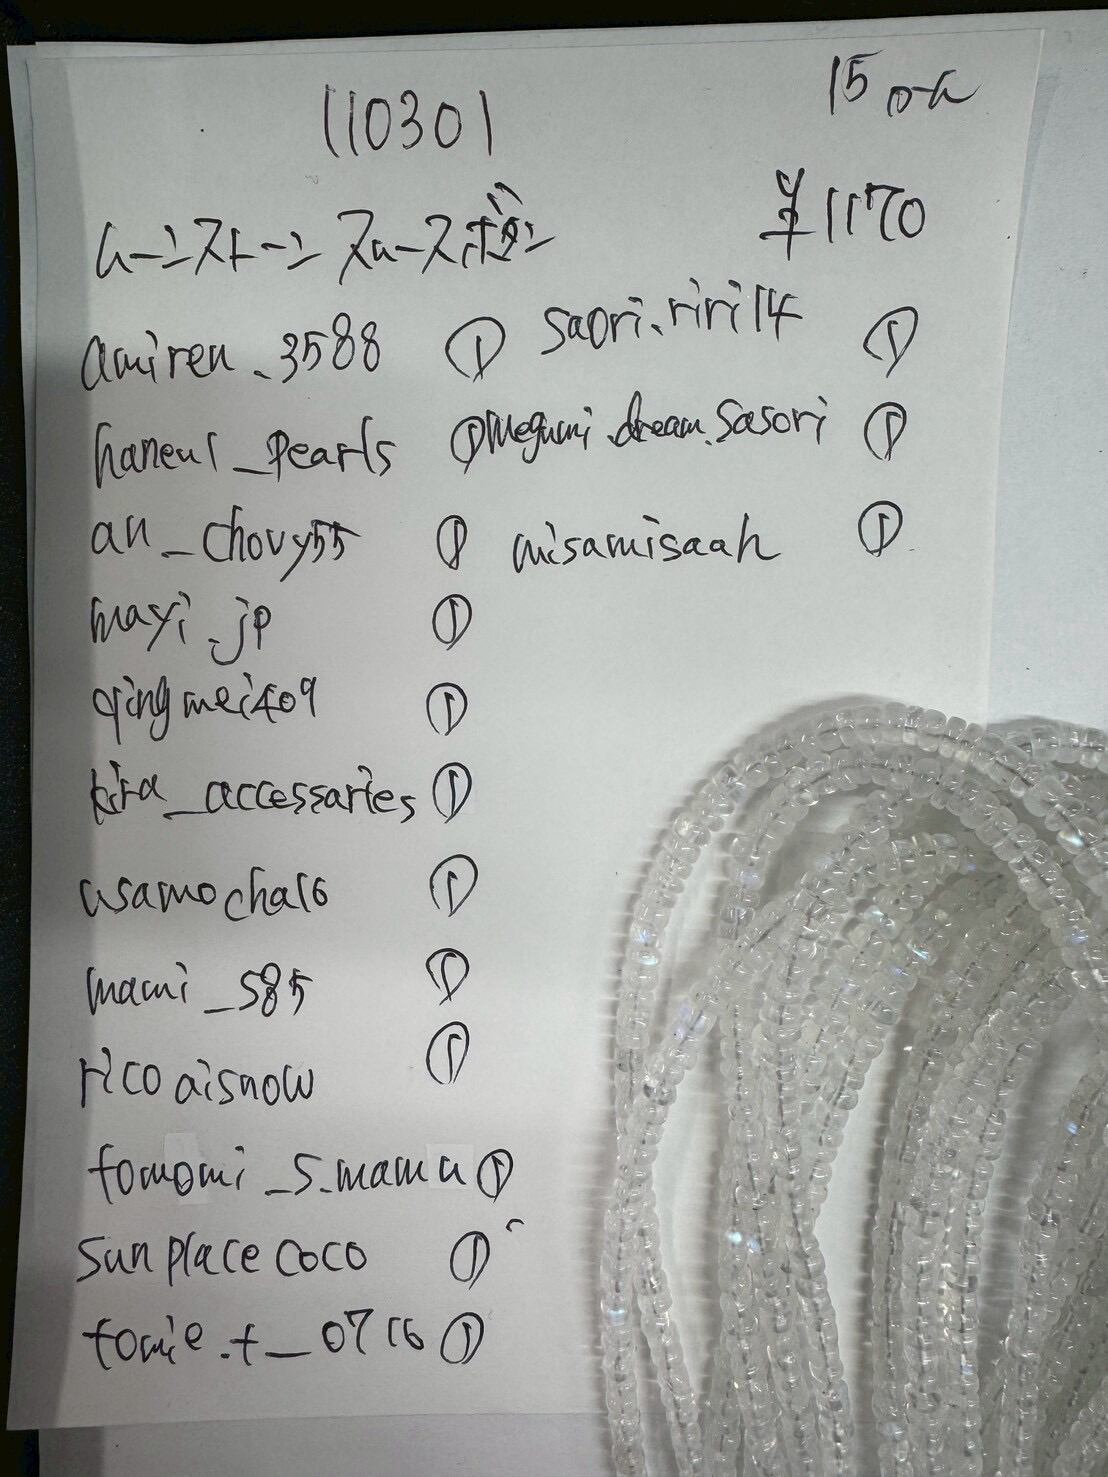 110301
15
ムーンストーン スムースボタン
¥1170
amiren.3588 ①
haneul_pearls ①
an_chovy55 ①
mayi.jp ①
qingmei409 ①
kira_accessaries ①
usamocha16 ①
mami_585 ①
ricoaisnow ①
tomomi_s.mama ①
sunplacecoco ①
tomie.t_0716 ①
saori.riri14 ①
megumi.dream.sasori ①
misamisaah ①